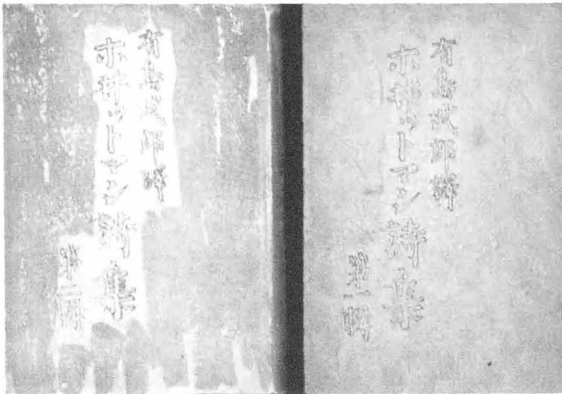 有島武郎譯
ホヰットマン詩集
有島武郎譯
ホヰットマン詩集